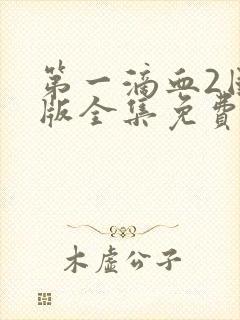 第一滴血2
版全集免费
木虚公子